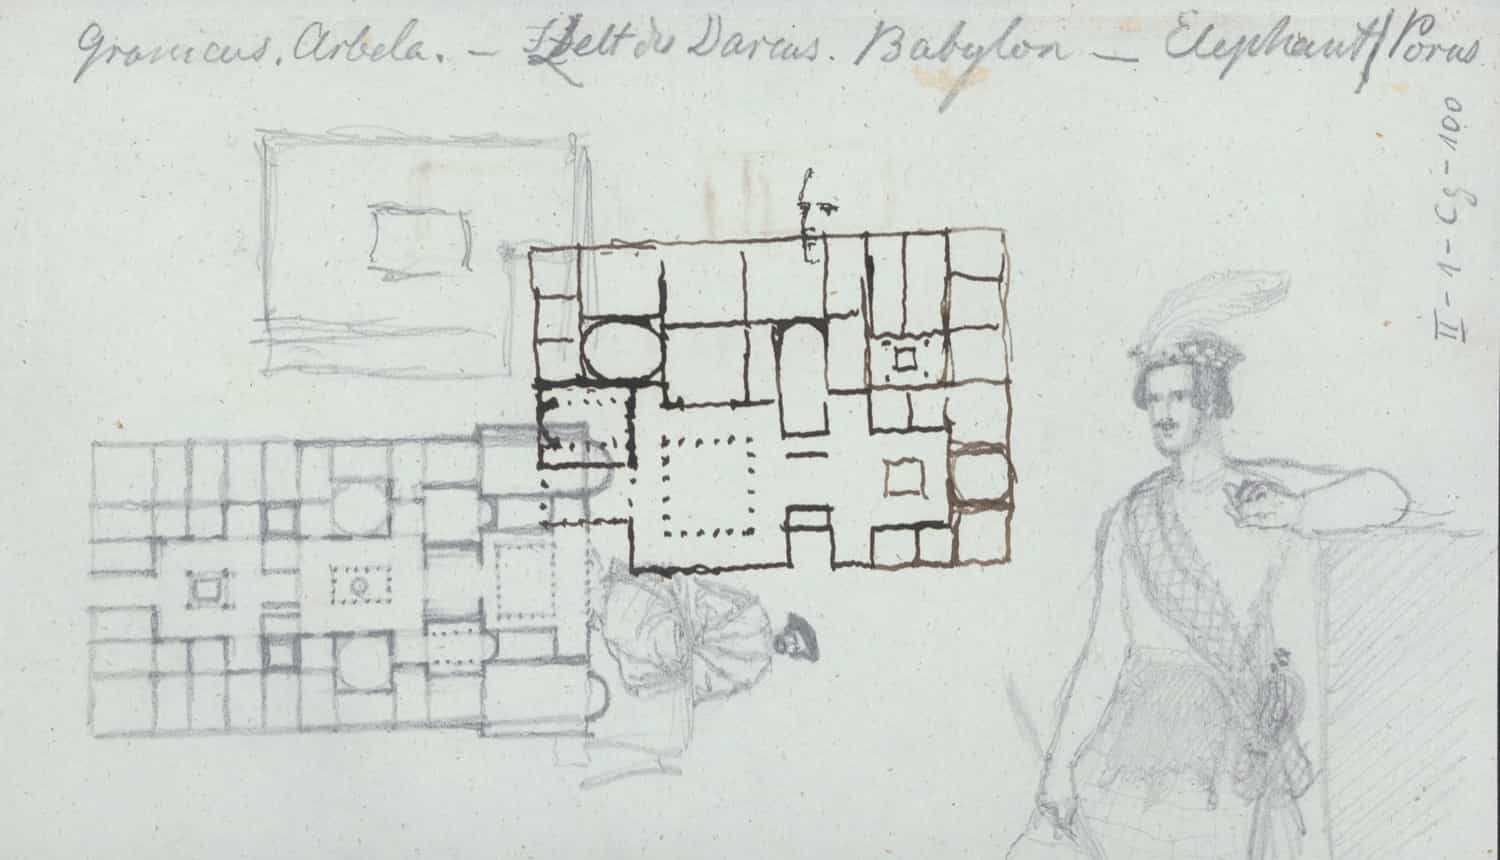 Granicus. Arbela. — Zelt des Darius. Babylon — Elephant / Porus
II-1-Cg-100